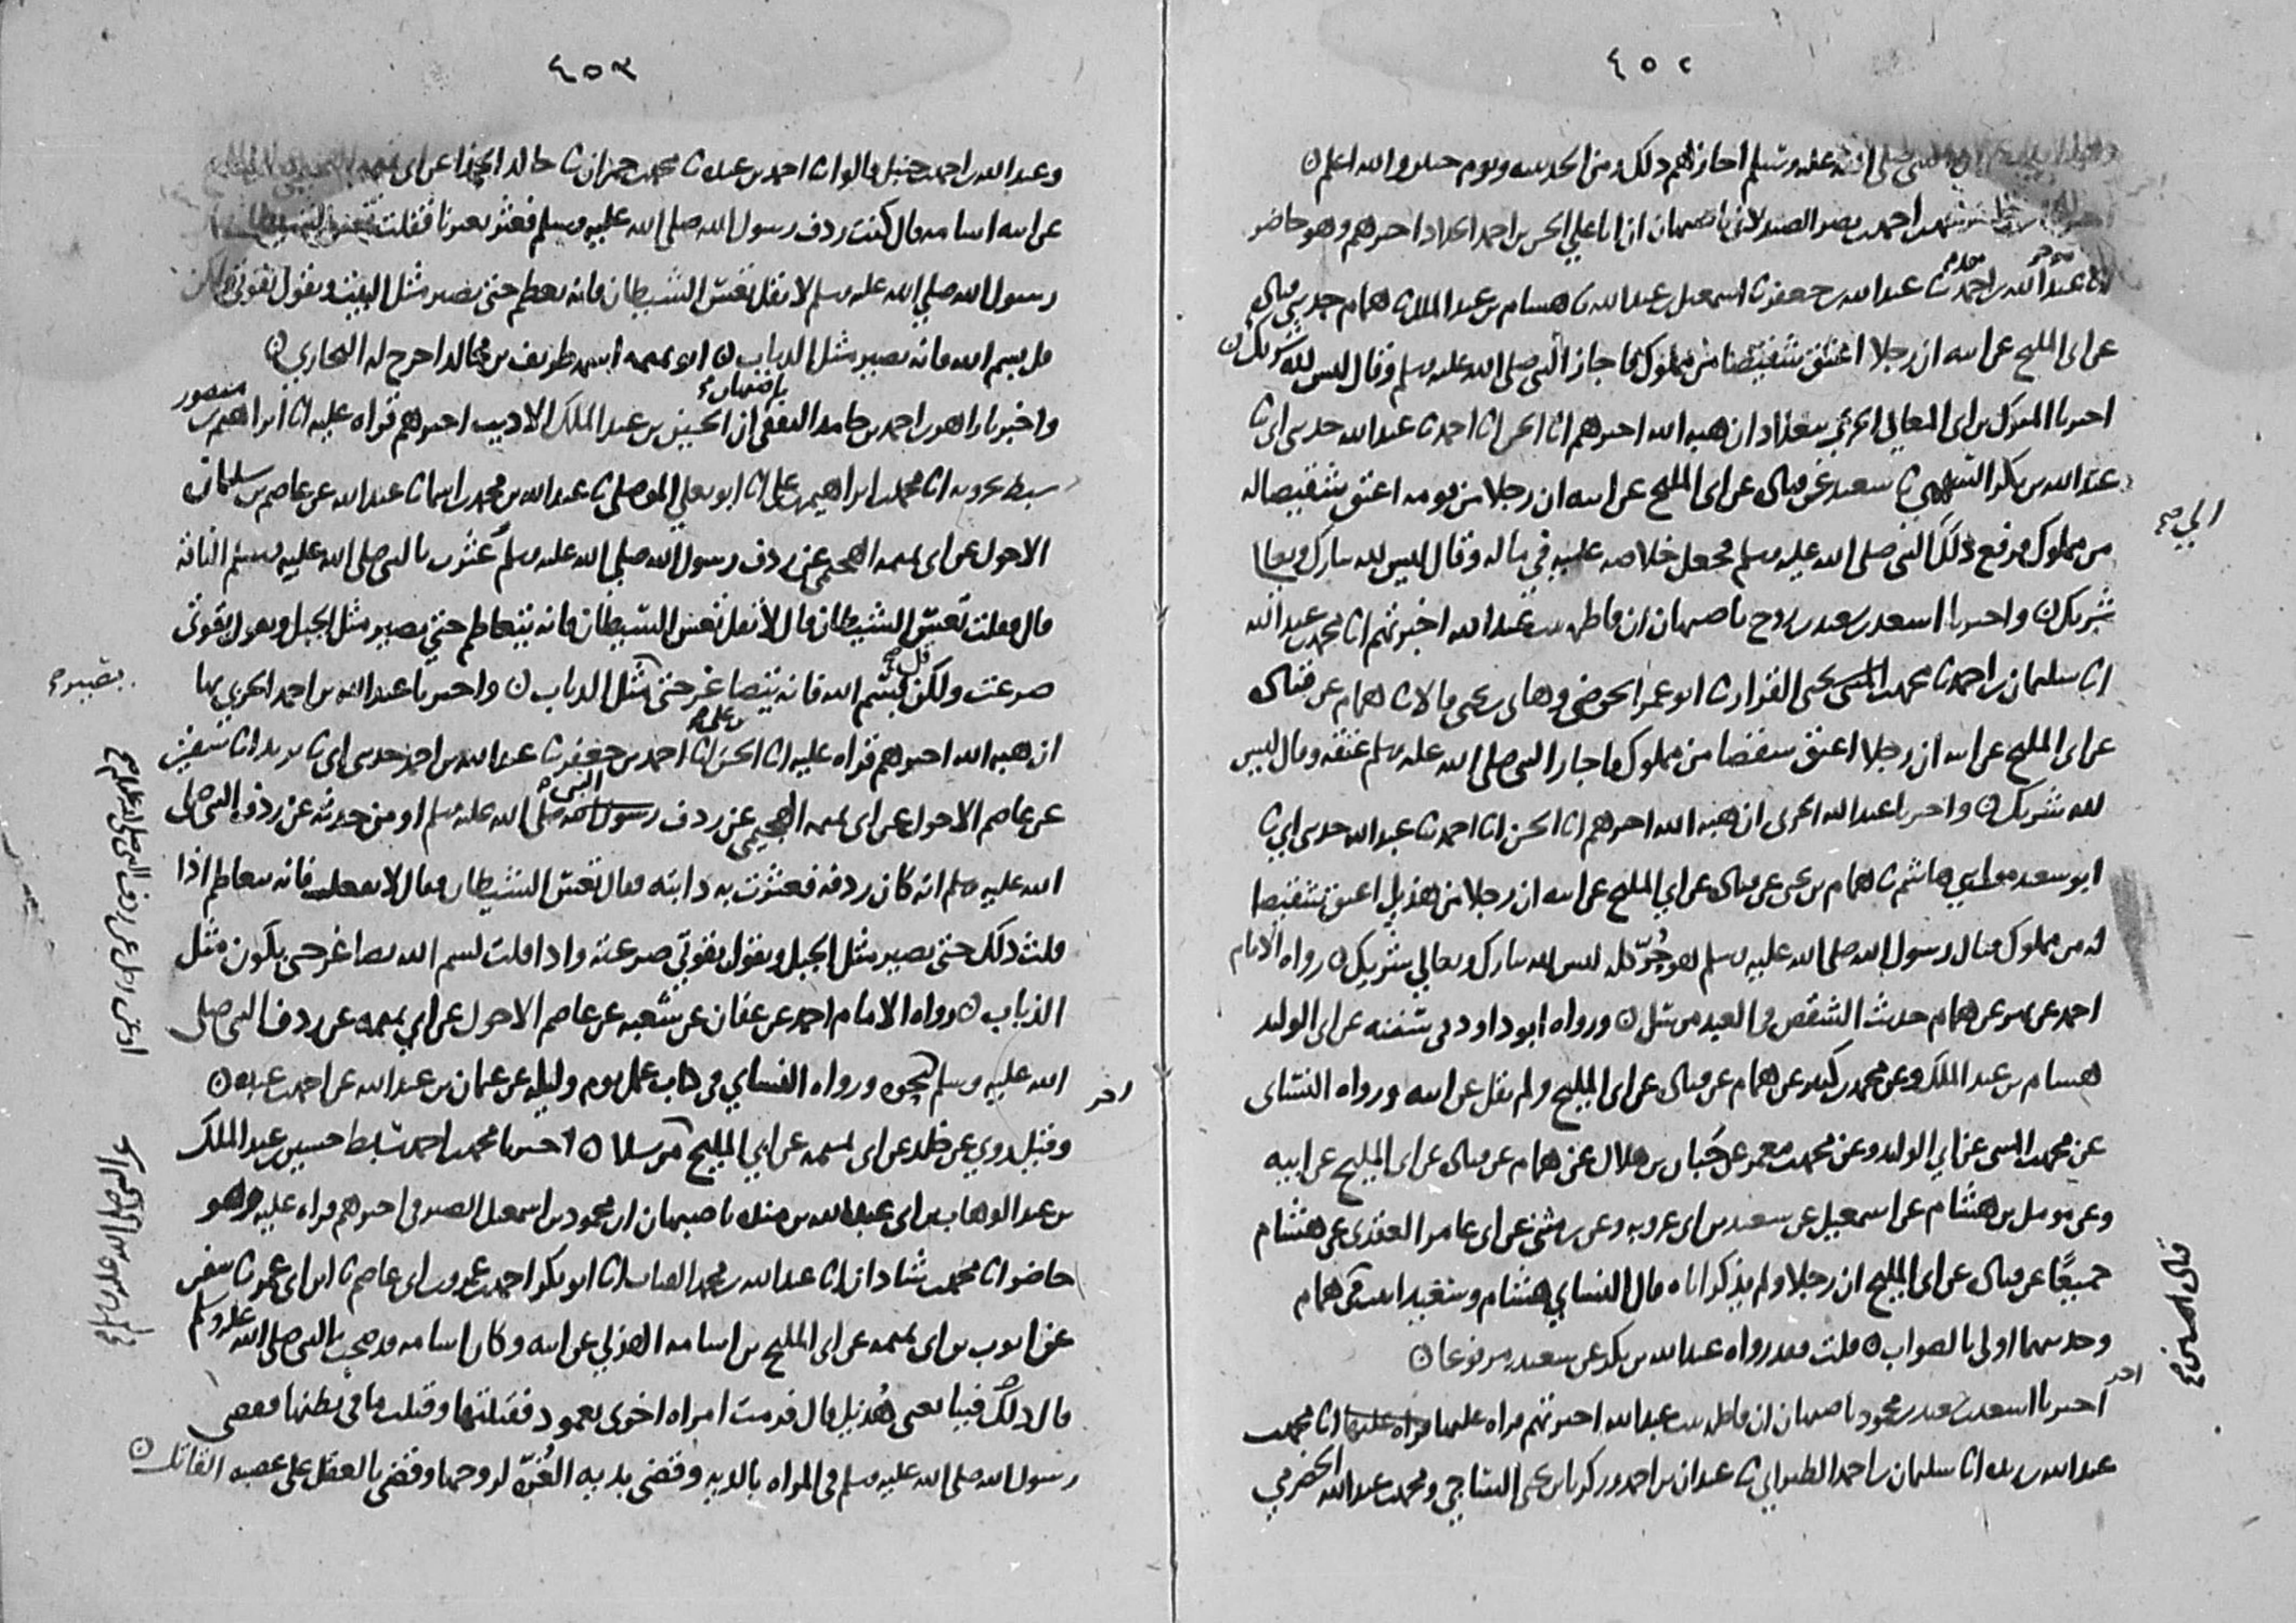 ٤٥٢
صلى الله عليه وسلم اجاز لهم ذلك زمن الحديبيه ويوم حنين والله اعلم ن
احمد بن نصر الصيدلاني باصبهان ان ابا علي الحسن بن احمد الحداد اخبرهم وهو حاضر
عبد الله بن جعفر ثنا اسمعيل بن عبد الله ثنا هشام بن عبد الملك ثنا همام حدثني قتاده
عن ابي المليح عن ابيه ان رجلا اعتق شقيصا من مملوك فاجاز النبي صلى الله عليه وسلم وقال ليس لله شريك ن
اخبرنا المبارك بن ابي المعالي الحريمي ببغداد ان هبه الله اخبرهم انا الحسن انا احمد ثنا عبد الله حدثني ابي ثنا
عبد الله بن بكر السهمي ثنا سعيد عن قتاده عن ابي المليح عن ابيه ان رجلا من قومه اعتق شقيصا له
من مملوك فرفع ذلك الى النبي صلى الله عليه وسلم فجعل خلاصه عليه في ماله وقال ليس لله تبارك وتعالى
شريك ن واخبرنا اسعد بن سعيد بن روح باصبهان ان فاطمه بنت عبد الله اخبرتهم انا محمد بن عبد الله
انا سليمان بن احمد ثنا محمد بن يحيى القزاز ثنا ابو عمر الحوضي وهانئ بن يحيى قالا ثنا همام عن قتاده
عن ابي المليح عن ابيه ان رجلا اعتق شقصا من مملوك فاجاز النبي صلى الله عليه وسلم عتقه وقال ليس
لله شريك ن واخبرنا عبد الله الحربي ان هبه الله اخبرهم انا الحسن انا احمد ثنا عبد الله حدثني ابي ثنا
ابو سعيد مولى بني هاشم ثنا همام بن يحيى عن قتاده عن ابي المليح عن ابيه ان رجلا من هذيل اعتق شقيصا
له من مملوك فقال رسول الله صلى الله عليه وسلم هو حُرّ كله ليس لله تبارك وتعالي شريك ن رواه الامام
احمد عن بهز عن همام حديث الشقص في العبد مرسل ن ورواه ابو داود في سننه عن ابي الوليد
هشام بن عبد الملك وعن محمد بن كثير عن همام عن قتاده عن ابي المليح ولم يقل عن ابيه ورواه النسائي
عن محمد بن المثنى عن ابي الوليد وعن محمد بن معمر عن حَبان بن هلال عن همام عن قتاده عن ابي المليح عن ابيه
وعن مومل بن هشام عن اسمعيل عن سعيد بن ابي عروبه وعن بن مثنى عن ابي عامر العقدي عن هشام
جميعًا عن قتاده عن ابي المليح ان رجلا ولم يذكر اباه قال النسائي هشام وسعيد اثبت من همام
وحديثهما اولى بالصواب ن قلت وقد رواه عبد الله بن بكر عن سعيد مرفوعا ن
اخر
اخبرنا اسعد بن سعيد بن محمود باصبهان ان فاطمه بنت عبد الله اخبرتهم قراه عليها انا محمد بن
عبد الله بن ريذه انا سليمان بن احمد الطبراني ثنا عبدان بن احمد وزكريا بن يحيى الساجي ومحمد بن عبد الله الحضرمي
٤٥٣
وعبد الله بن احمد بن حنبل قالوا ثنا احمد بن عبده ثنا محمد بن حمران ثنا خالد الحذا عن ابي
عن ابيه اسامه قال كنت ردف رسول الله صلى الله عليه وسلم فعثر بعيرنا فقلت
رسول الله صلي الله عليه وسلم لا تقل تعس الشيطان فانه يعظم حتى يصير مثل البيت ويقول بقوتي
قل بسم الله فانه يصير مثل الذباب ن ابو تميمه اسمه طريف بن مجالد اخرج له البخاري ن
واخبرنا زاهر بن احمد بن حامد الثقفي باصبهان ان الحسين بن عبد الملك الاديب اخبرهم قراه عليه انا ابراهيم بن منصور
سبط بحرويه انا محمد بن ابراهيم بن علي انا ابو يعلي الموصلي ثنا عبد الله بن محمد بن اسما ثنا عبد الله عن عاصم بن سليمان
الاحول عن ابي تميمه الهجيمي عن ردف رسول الله صلي الله عليه وسلم عثرت بالنبي صلى الله عليه وسلم الناقه
قال فقلت تعس الشيطان قال لا تقل تعس الشيطان فانه يتعاظم حتى يصير مثل الجبل ويقول بقوتي
صرعت ولكن قل بسم الله فانه يتصاغر حتى مثل الذباب ن واخبرنا عبد الله بن احمد الحربي بها
ان هبه الله اخبرهم قراه عليه انا الحسن بن علي انا احمد بن جعفر ثنا عبد الله بن احمد حدثني ابي ثنا يزيد انا سفين
عن عاصم الاحول عن ابي تميمه الهجيمي عن ردف النبي صلى الله عليه وسلم او من حدثه عن ردف النبي صلى
الله عليه وسلم انه كان ردفه فعثرت به دابته فقال تعس الشيطان فقال لا تفعل فانه يتعاظم اذا
قلت ذلك حتى يصير مثل الجبل ويقول بقوتي صرعته واذا قلت بسم الله تصاغر حتى يكون مثل
الذباب ن رواه الامام احمد عن عفان عن شعبه عن عاصم الاحول عن ابي تميمه عن ردف النبي صلى
الله عليه وسلم بنحوه ورواه النسائي في كتاب عمل يوم وليله عن عثمان بن عبد الله عن احمد بن عبده ن
وقيل روي عن خالد عن ابي تميمه عن ابي المليح مرسلا ن
اخر
اخبرنا محمد بن احمد سبط حسين بن عبد الملك
بن عبد الوهاب بن ابي عبد الله بن منده باصبهان ان محمود بن اسمعيل الصيرفي اخبرهم قراه عليه وهو
حاضر انا محمد بن شاذان انا عبد الله بن محمد القباب انا ابو بكر احمد بن عمرو بن ابي عاصم ثنا ابن ابي عمر ثنا سفين
عن ايوب بن ابي تميمه عن ابي المليح بن اسامه الهذلي عن ابيه وكان اسامه قد صحب النبي صلى الله عليه وسلم
قال ذلك فينا يعني هُذيل قال فرمت امراه اخرى بعمود فقتلتها وقتلت ما في بطنها فقضى
رسول الله صلى الله عليه وسلم في المراه بالديه وقضى بديه الغُرّه لزوجها وقضى بالعقل على عصبه القاتله ن